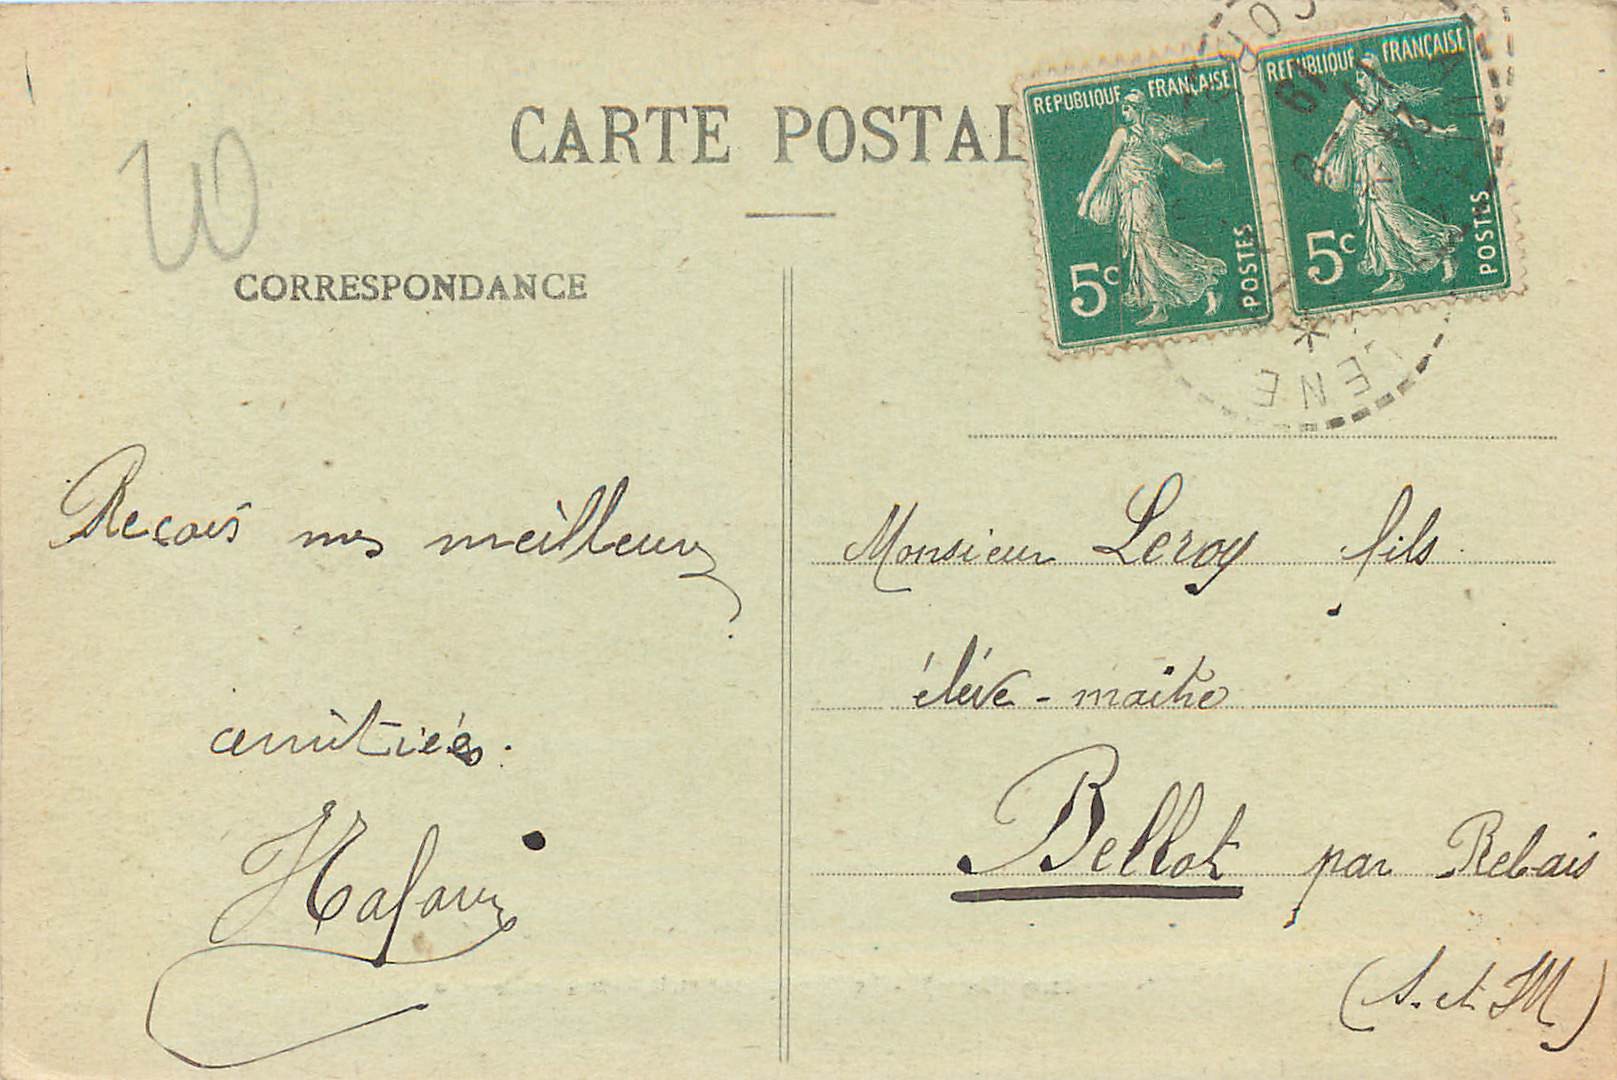 CARTE POSTAL
REPUBLIQUE FRANÇAISE
5c
POSTES
REPUBLIQUE FRANÇAISE
5c
POSTES
CORRESPONDANCE
Reçois mes meilleures
amitiés.
Monsieur Leroy fils
élève-maître
Bellot par Rebais
(S. et M)